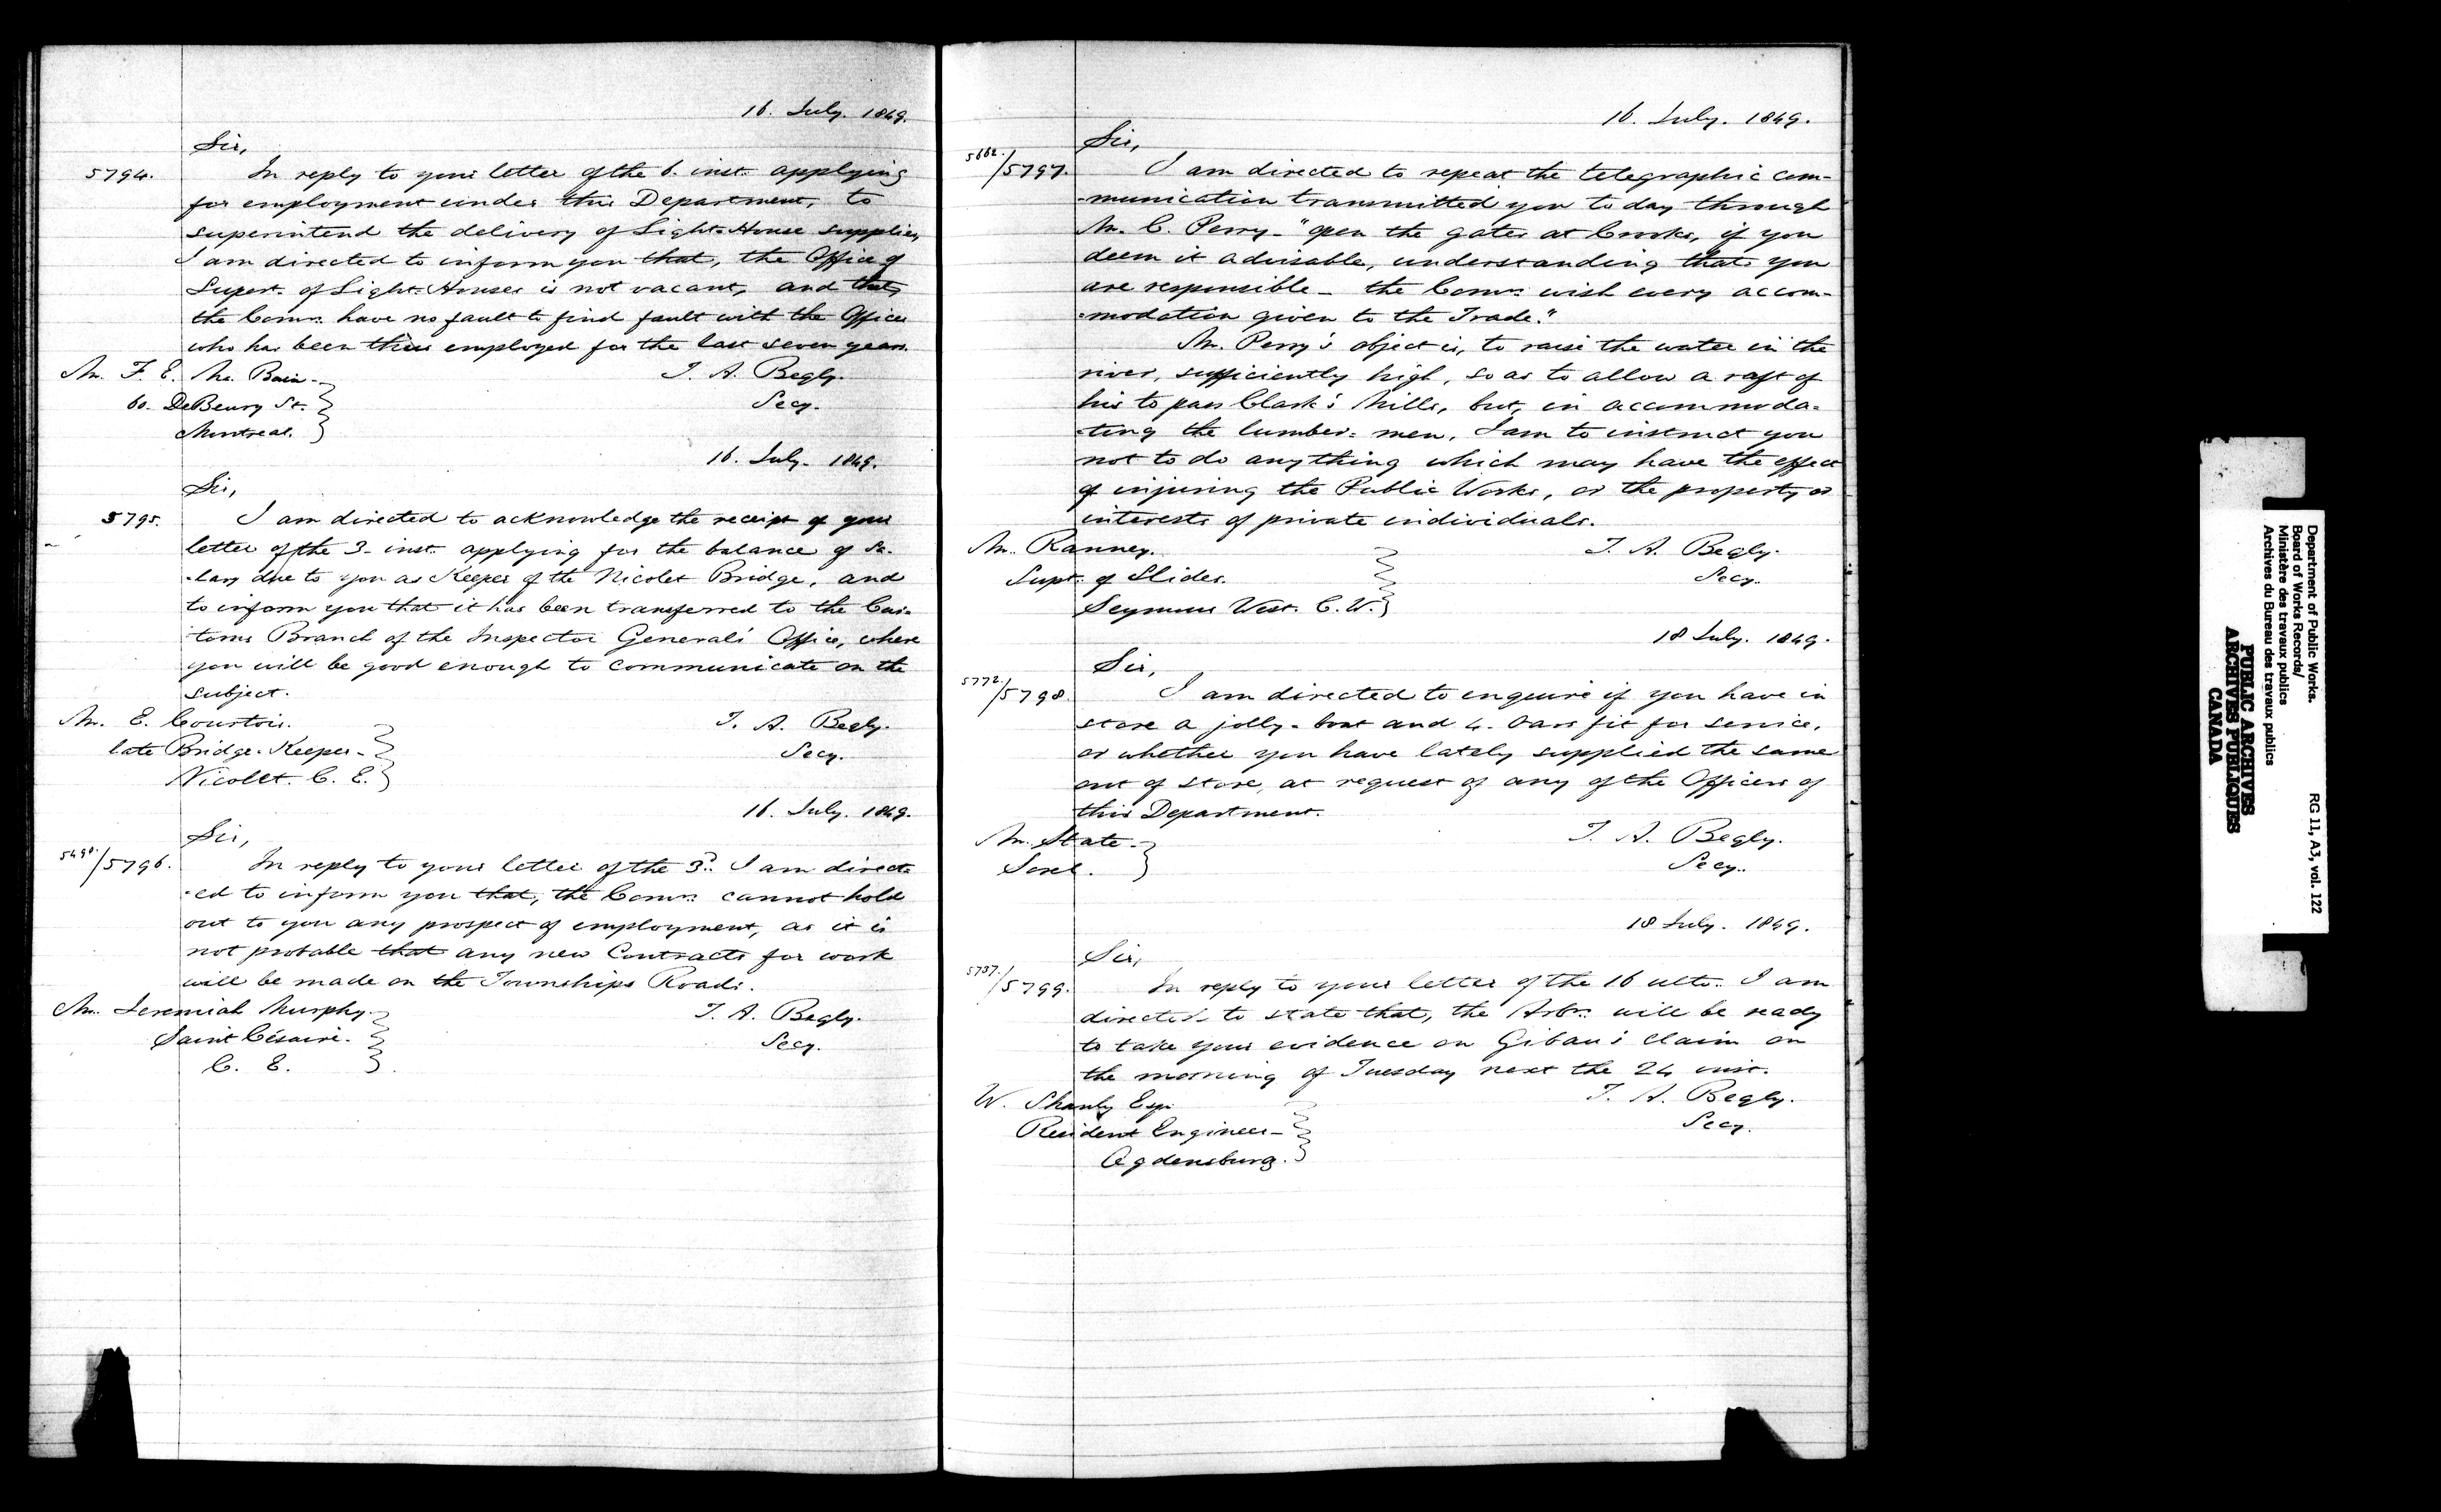 16. July. 1849.
Sir,
5794. In reply to your letter of the 6. inst. applying
for employment under this Department, to
superintend the delivery of Light-House supplies,
I am directed to inform you that, the Office of
Supert. of Light-Houses is not vacant, and that,
the Comrs. have no fault to find fault with the Officer
who has been thus employed for the last seven years.
Mr. F. E. Mc. Bain.
T. A. Begly.
60. DeBeury St.
Secy.
Montreal.
16. July. 1849.
Sir,
5795. I am directed to acknowledge the receipt of your
letter of the 3. inst. applying for the balance of Sa-
-lary due to you as Keeper of the Nicolet Bridge, and
to inform you that it has been transferred to the Cus-
toms Branch of the Inspector General's Office, where
you will be good enough to communicate on the
subject.
Mr. E. Courtois.
T. A. Begly.
late Bridge-Keeper-
Secy.
Nicolet. C. E.
16. July. 1849.
Sir,
5490./5796. In reply to your letter of the 3d. I am direct-
-ed to inform you that, the Comrs. cannot hold
out to you any prospect of employment, as it is
not probable that any new Contracts for work
will be made on the Townships Roads.
Mr. Jeremiah Murphy.
T. A. Begly.
Saint Césaire.
Secy.
C. E.
16. July. 1849.
Sir,
5662./5797. I am directed to repeat the telegraphic com-
-munication transmitted you to day through
Mr. C. Perry - "open the gates at Crooks, if you
deem it advisable, understanding that you
are responsible - the Comrs. wish every accom-
-modation given to the Trade."
Mr. Perry's object is, to raise the water in the
river, sufficiently high, so as to allow a raft of
his to pass Clark's Mills, but, in accommoda-
-ting the lumber-men, I am to instruct you
not to do anything which may have the effect
of injuring the Public Works, or the property or
interests of private individuals.
Mr. Ranney.
T. A. Begly.
Supt. of Slides.
Secy.
Seymour West. C. W.
18 July. 1849.
Sir,
5772./5798. I am directed to enquire if you have in
store a jolly-boat and 4. Oars fit for service,
or whether you have lately supplied the same
out of store, at request of any of the Officers of
this Department.
Mr. State.
T. A. Begly.
Sorel.
Secy.
18 July. 1849.
Sir,
5737./5799. In reply to your letter of the 16 ulto. I am
directed to state that, the Arbrs. will be ready
to take your evidence on Gibau's Claim on
the morning of Tuesday next the 24 inst.
W. Shanly Esqr.
T. A. Begly.
Resident Engineer-
Secy.
Ogdensburg.
Department of Public Works.
Board of Works Records/
Ministère des travaux publics
Archives du Bureau des travaux publics
RG 11, A3, vol. 122
PUBLIC ARCHIVES
ARCHIVES PUBLIQUES
CANADA